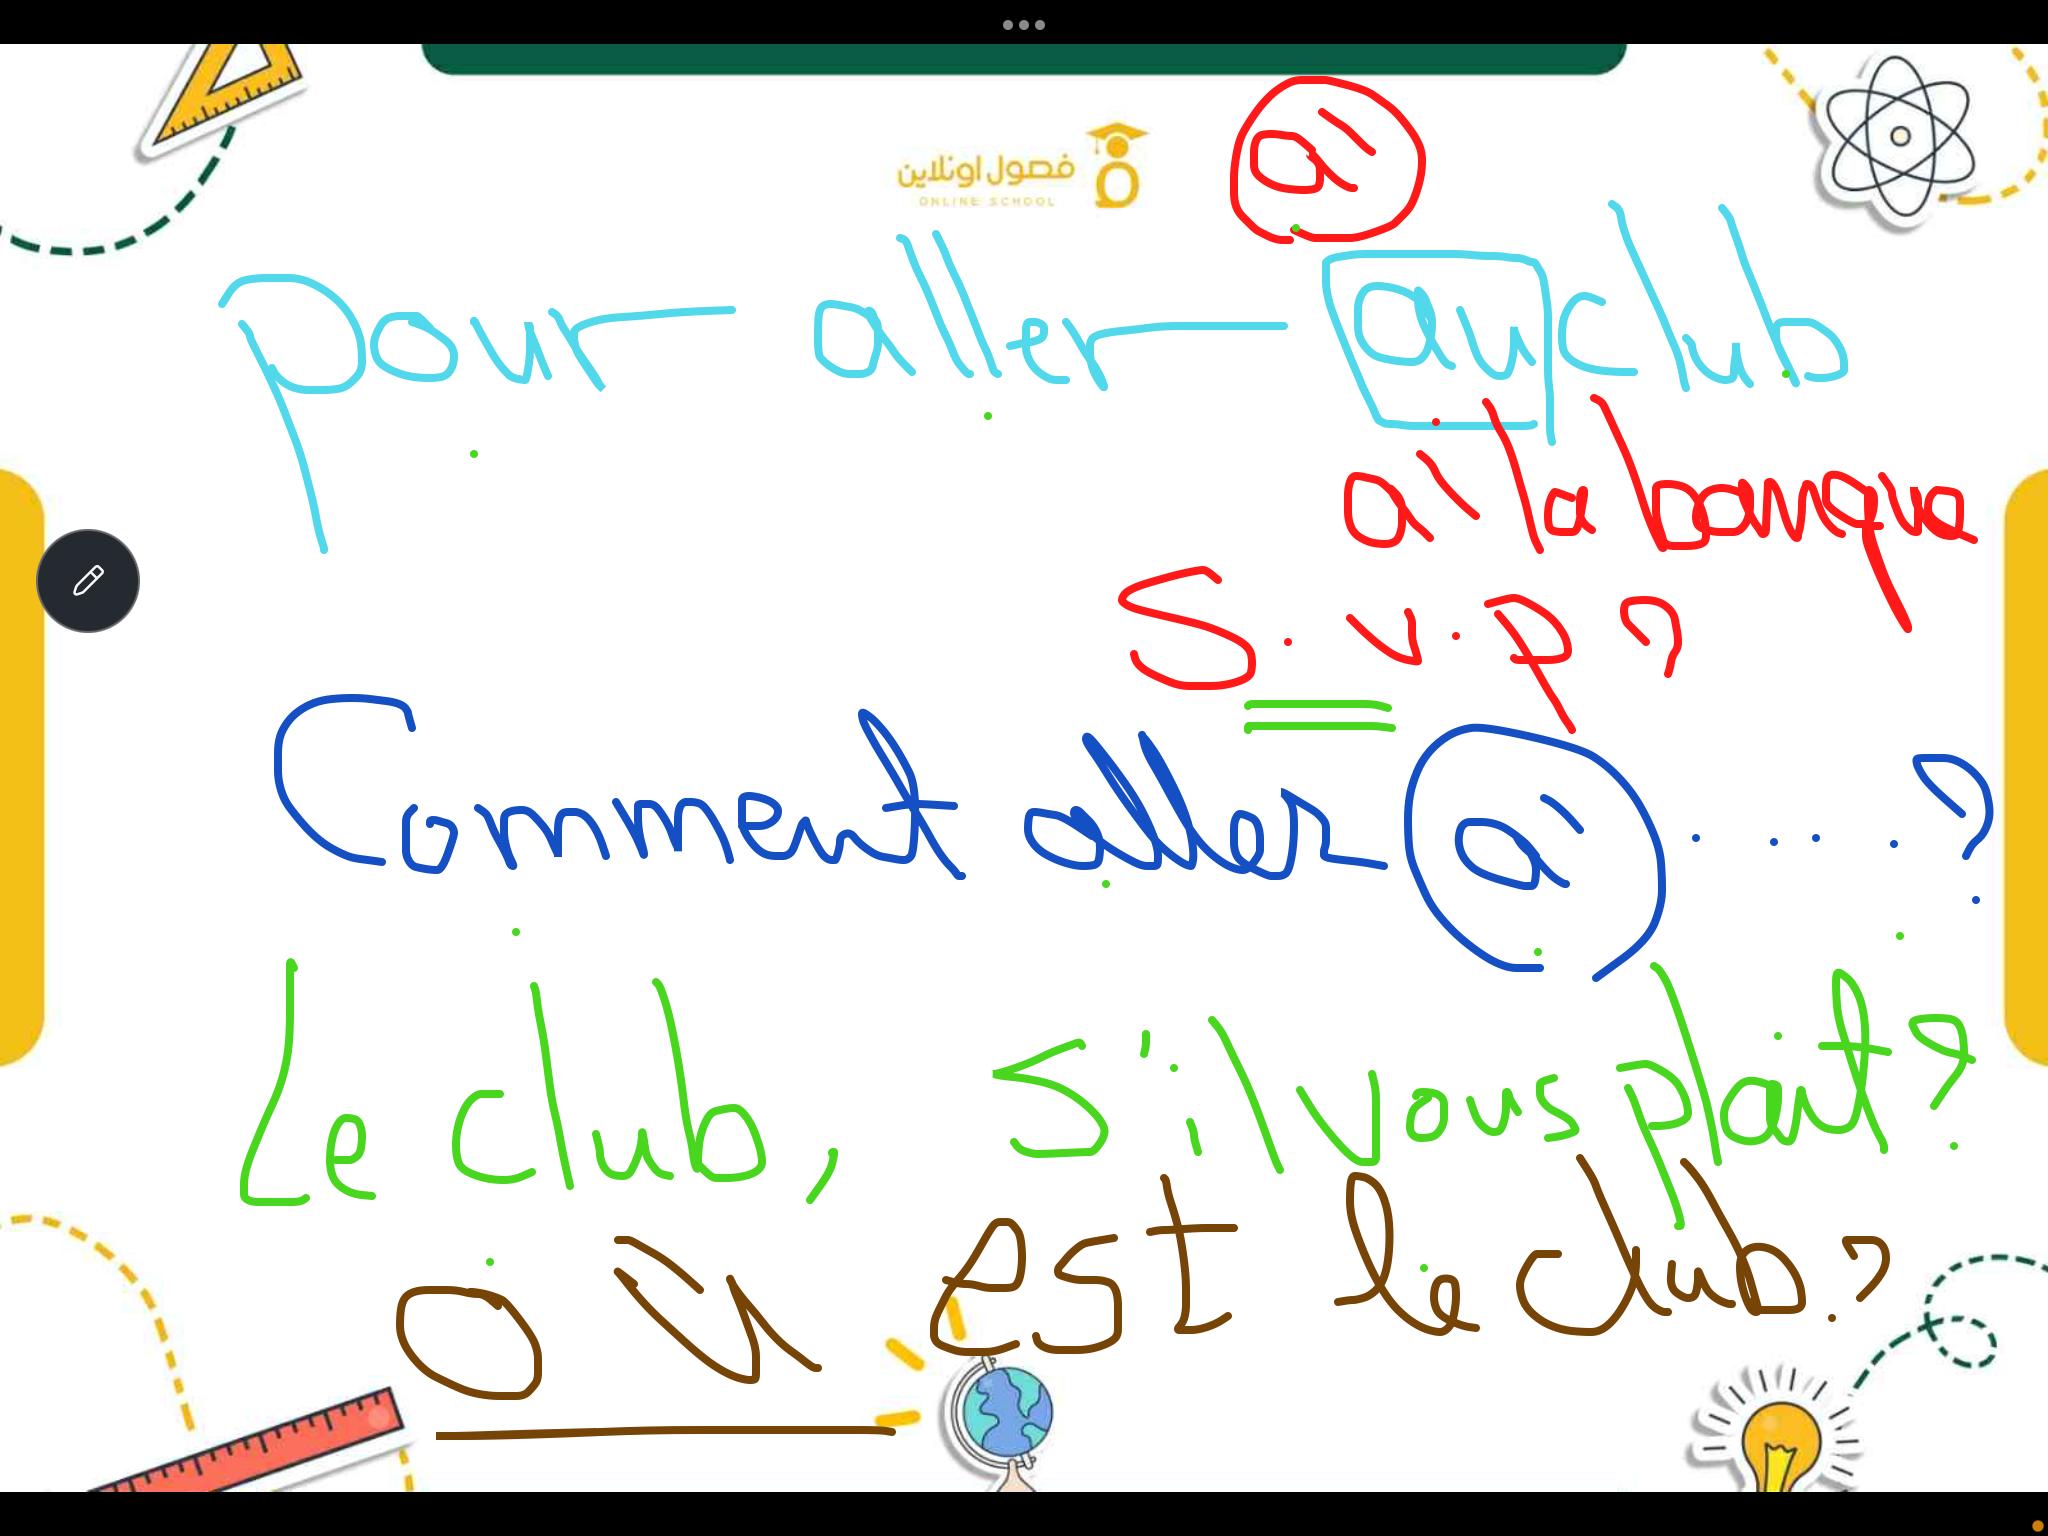 فصول اونلاين
ONLINE SCHOOL
à
pour aller au club
à la banque
S.v.p?
Comment aller à ....?
Le club, S'il vous plait?
Où est le club?